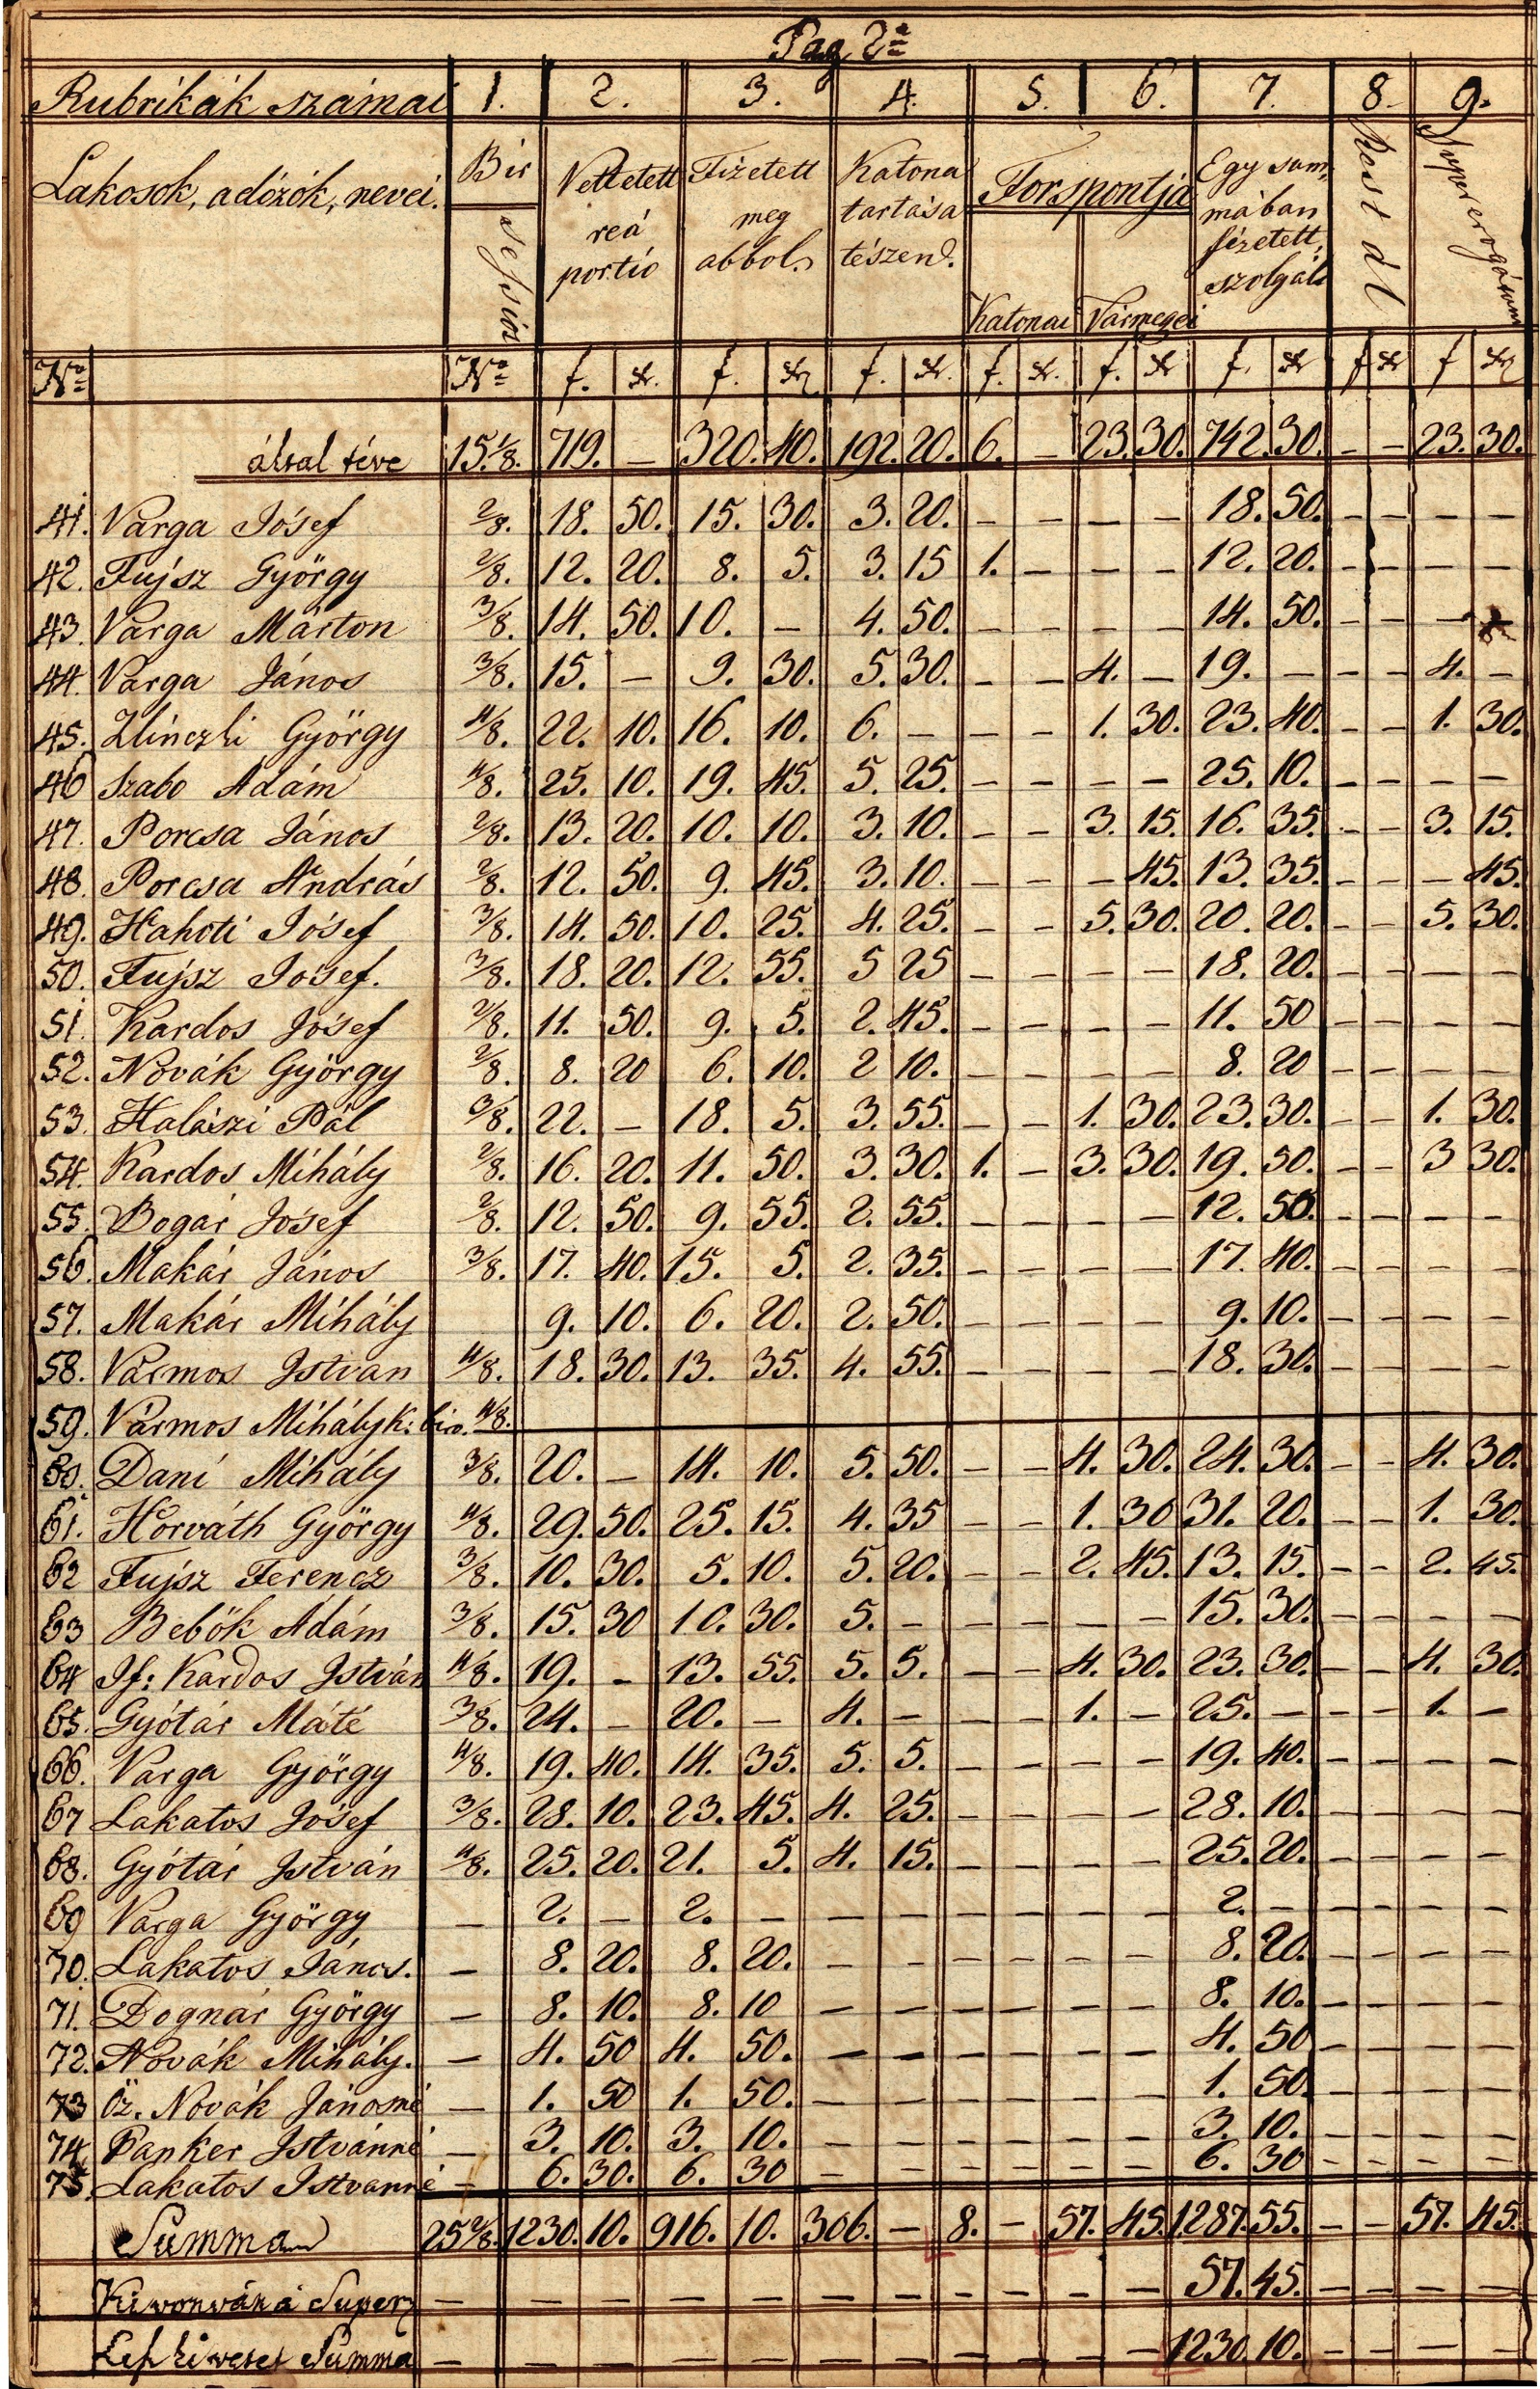 Pag 2ª
Rubrikák számai 1. 2. 3. 4. 5. 6. 7. 8. 9.
Lakosok, adózók, nevei. Bir sessiót Vettetett reá portió Fizetett meg abbol. Katona tartása tészen. Forspontja Katonai Vármegei Egy summában fizetett, szolgált Rest dl Supererogátum
Nº Nº f. xr. f. xr. f. xr. f. xr. f. xr f. xr f xr f xr
által téve 15.1/8. 719. – 320. 40. 192. 20. 6. – 23. 30. 742. 30. – – 23. 30.
41. Varga Jósef 2/8. 18. 50. 15. 30. 3. 20. – – – – 18. 50. – – – –
42. Fujsz György 2/8. 12. 20. 8. 5. 3. 15 1. – – – 12. 20. – – – –
43. Varga Márton 3/8. 14. 50. 10. – 4. 50. – – – – 14. 50. – – – –
44. Varga János 3/8. 15. – 9. 30. 5. 30. – – 4. – 19. – – – 4. –
45. Zlinczki György 4/8. 22. 10. 16. 10. 6. – – – 1. 30. 23. 40. – – 1. 30.
46 Szabo Adám 4/8. 25. 10. 19. 45. 5. 25. – – – – 25. 10. – – – –
47. Porcsa János 2/8. 13. 20. 10. 10. 3. 10. – – 3. 15. 16. 35. – – 3. 15.
48. Porcsa András 2/8. 12. 50. 9. 45. 3. 10. – – – 45. 13. 35. – – – 45.
49. Hahoti Jósef 3/8. 14. 50. 10. 25. 4. 25. – – 5. 30. 20. 20. – – 5. 30.
50. Fujsz Jósef. 3/8. 18. 20. 12. 55. 5 25 – – – – 18. 20. – – – –
51. Kardos Jósef 2/8. 11. 50. 9. 5. 2. 45. – – – – 11. 50 – – – –
52. Novák György 2/8. 8. 20 6. 10. 2 10. – – – – 8. 20 – – – –
53. Halászi Pál 3/8. 22. – 18. 5. 3. 55. – – 1. 30. 23. 30. – – 1. 30.
54. Kardos Mihály 2/8. 16. 20. 11. 50. 3. 30. 1. – 3. 30. 19. 50. – – 3 30.
55. Bogár Jósef 2/8. 12. 50. 9. 55. 2. 55. – – – – 12. 50. – – – –
56. Makár János 3/8. 17. 40. 15. 5. 2. 35. – – – – 17. 40. – – – –
57. Makár Mihály 9. 10. 6. 20. 2. 50. – – – – 9. 10. – – – –
58. Vármos Istvan 4/8. 18. 30. 13. 35. 4. 55. – – – – 18. 30. – – – –
59. Vármos Mihály k: biro. 4/8.
60. Dani Mihály 3/8. 20. – 14. 10. 5. 50. – – 4. 30. 24. 30. – – 4. 30.
61. Horváth György 4/8. 29. 50. 25. 15. 4. 35 – – 1. 30 31. 20. – – 1. 30.
62 Fujsz Ferencz 3/8. 10. 30. 5. 10. 5. 20. – – 2. 45. 13. 15. – – 2. 45.
63 Bebők Adám 3/8. 15. 30 10. 30. 5. – – – – – 15. 30. – – – –
64 If: Kardos István 4/8. 19. – 13. 55. 5. 5. – – 4. 30. 23. 30. – – 4. 30.
65. Gyótár Máté 3/8. 24. – 20. – 4. – – – 1. – 25. – – – 1. –
66. Varga György 4/8. 19. 40. 14. 35. 5. 5. – – – – 19. 40. – – – –
67 Lakatos Jósef 3/8. 28. 10. 23. 45. 4. 25. – – – – 28. 10. – – – –
68. Gyótár István 4/8. 25. 20. 21. 5. 4. 15. – – – – 25. 20. – – – –
69 Varga György – 2. – 2. – – – – – – – 2. – – – – –
70. Lakatos János. – 8. 20. 8. 20. – – – – – – 8. 20. – – – –
71. Dognár György – 8. 10. 8. 10 – – – – – – 8. 10. – – – –
72. Novák Mihály. – 4. 50 4. 50. – – – – – – 4. 50 – – – –
73 Öz. Novák Jánosné – 1. 50 1. 50. – – – – – – 1. 50. – – – –
74. Panker Istvánné – 3. 10. 3. 10. – – – – – – 3. 10. – – – –
75. Lakatos Istvanné – 6. 30. 6. 30 – – – – – – 6. 30 – – – –
Summa 25 2/8. 1230. 10. 916. 10. 306. – 8. – 57. 45. 1287. 55. – – 57. 45.
Kivonván a Super – – – – – – – – – – – 57. 45. – – – –
Summa – – – – – – – – – – – 1230. 10. – – – –